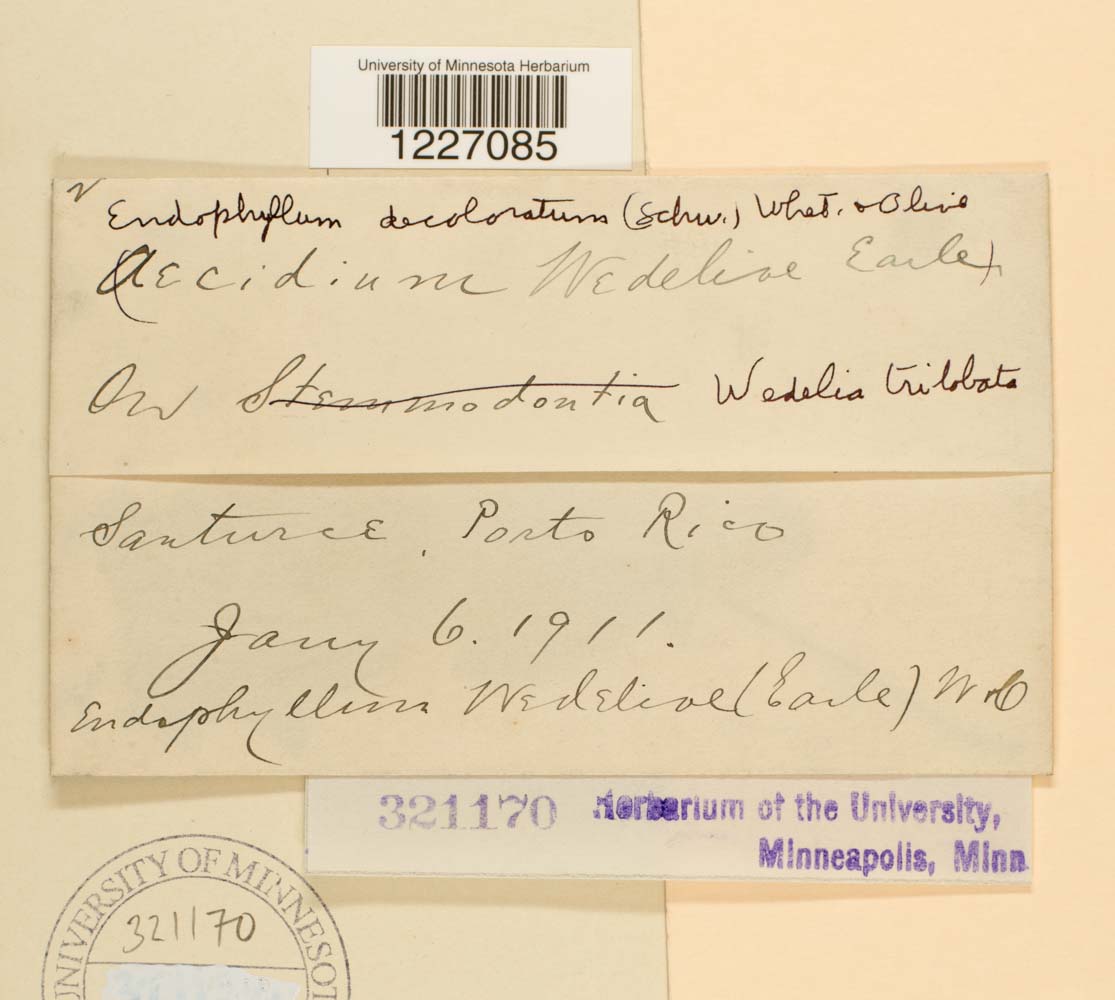 University of Minnesota Herbarium
1227085
Endophyllum decoloratum (Schw.) Whet. & Olive
(Aecidium Wedeliae Earle)
On Stemmodontia Wedelia trilobata
Santurce, Porto Rico
Jany 6. 1911.
Endophyllum Wedeliae (Earle) W & O
321170 Herbarium of the University,
Minneapolis, Minn
UNIVERSITY OF MINNESOT
321170